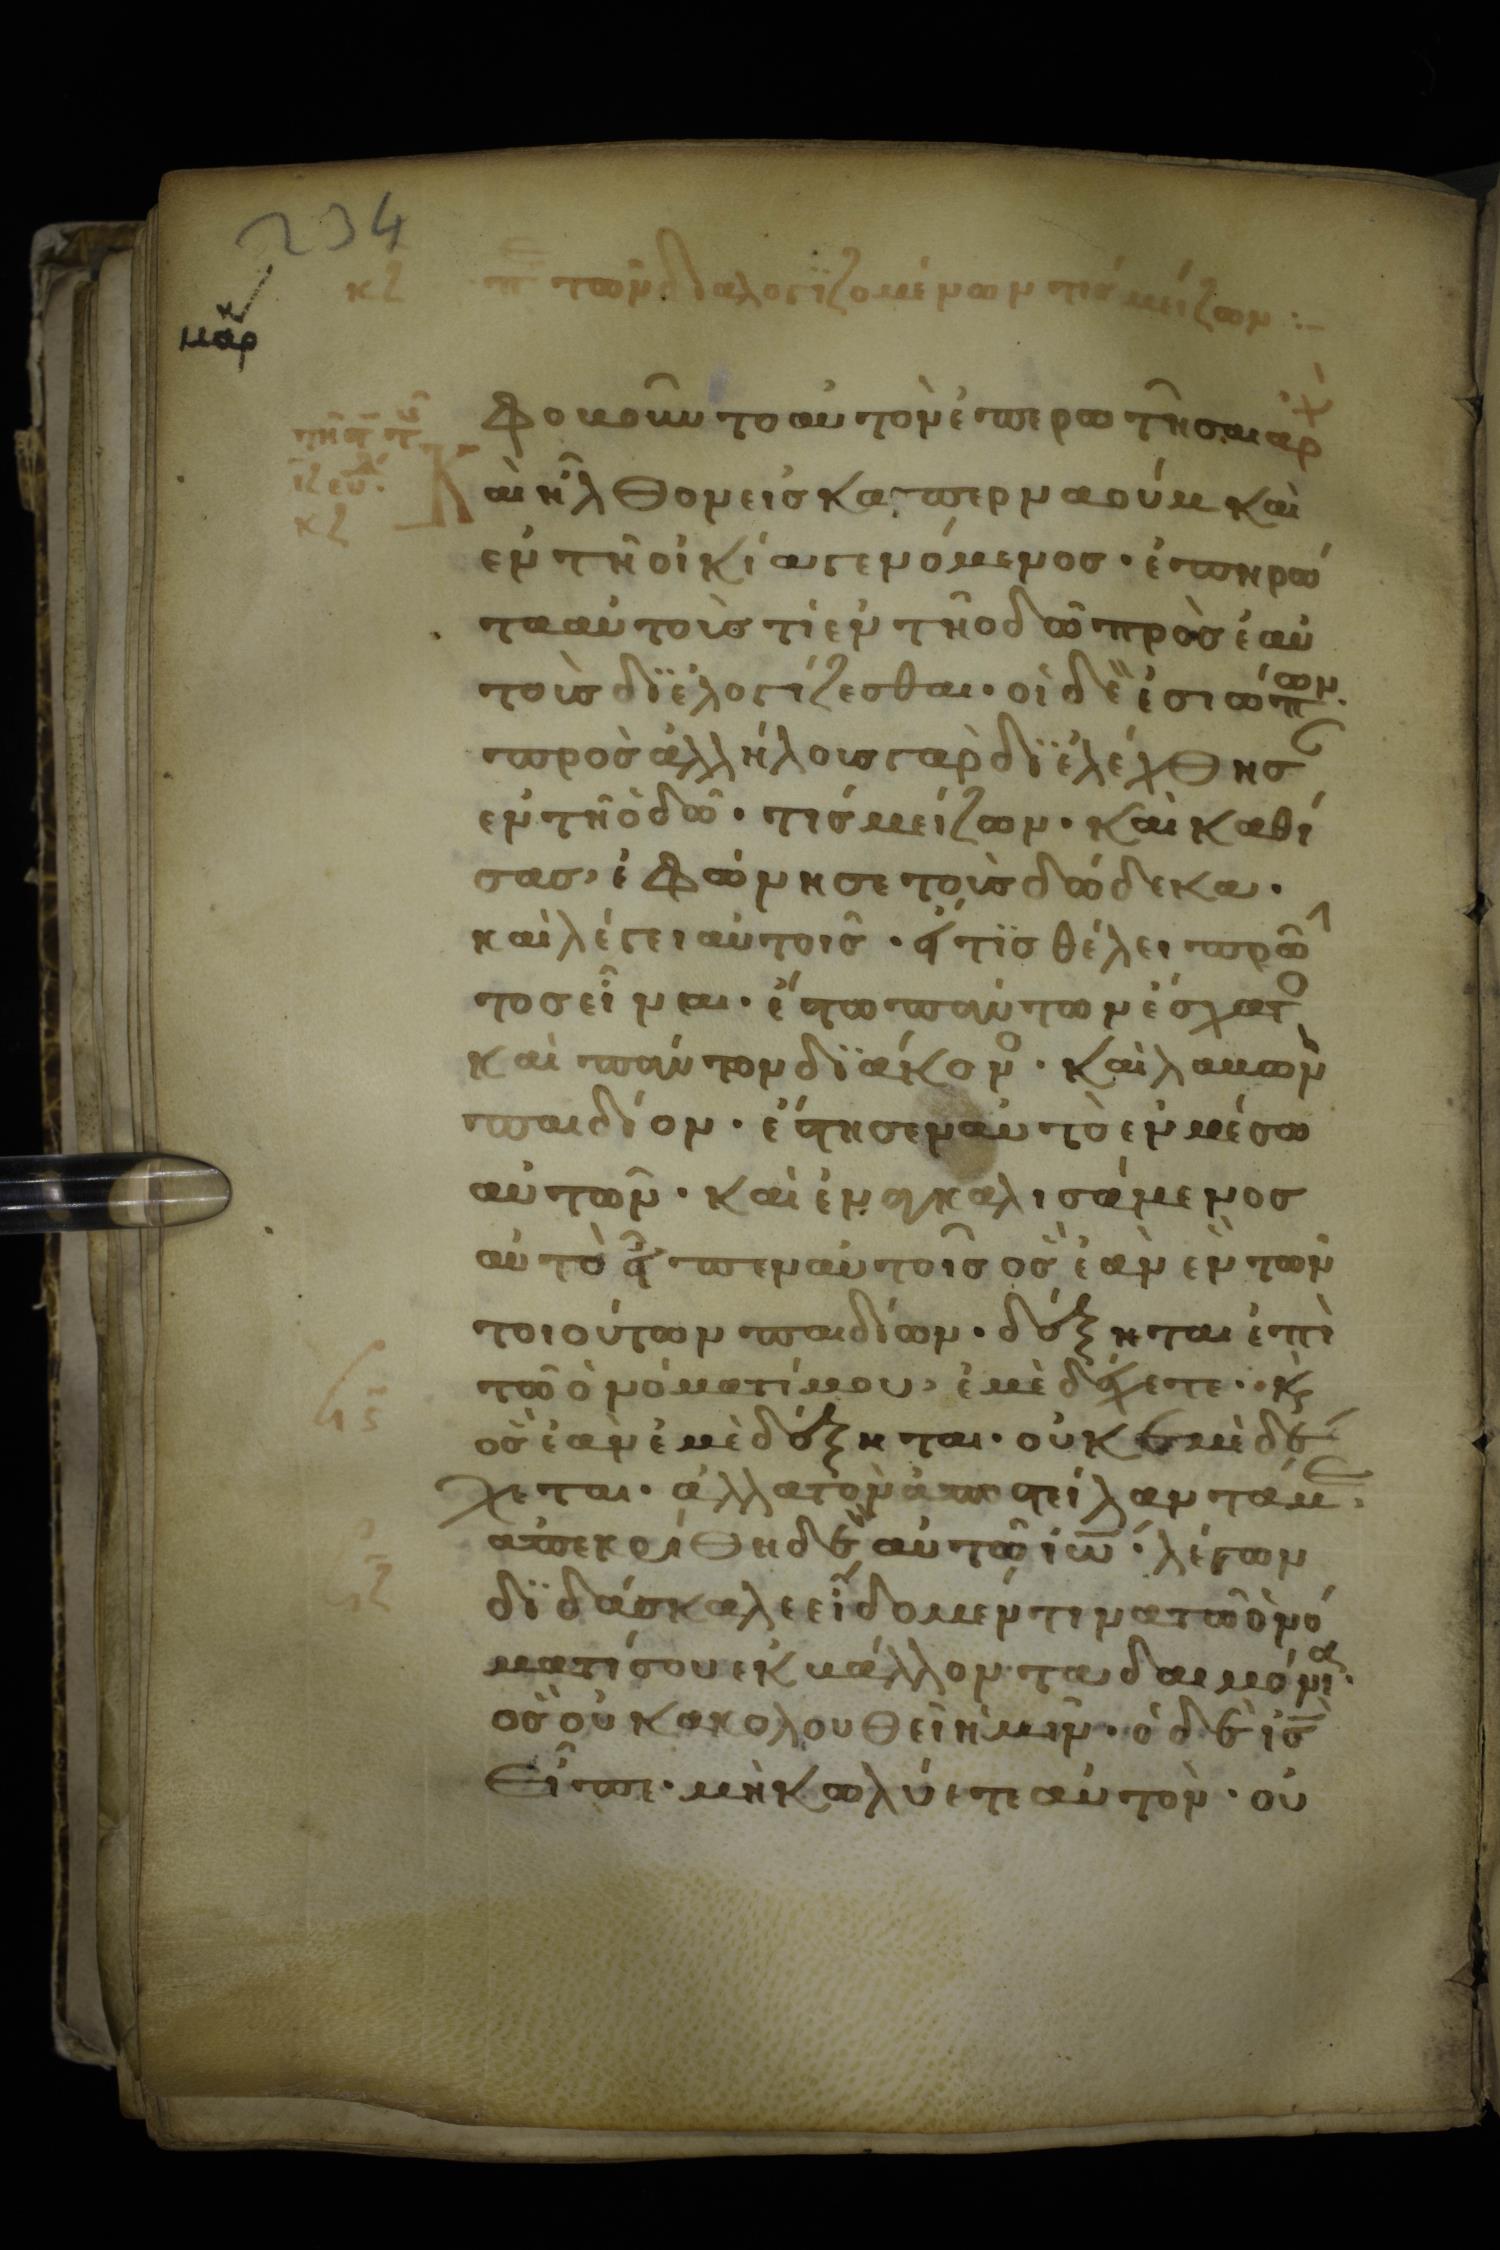 234
κζ π τῶν διαλογϊζομένων τίς μείζων :–
μαρκ
φοβοῦντο αὐτὸν ἐπερωτῆσαι αρχ
αὶ ἦλθον εἰς καπερναοὺμ καὶ
ἐν τῆ οἰκία γενόμενος · ἐπηρώ
τα αὐτοὺς τί ἐν τῆ ὁδῶ πρὸς ἑαυ
τοὺς διελογίζεσθαι · οἱ δὲ ἐσιώπων ·
πρὸς ἀλλήλους γὰρ διελέχθησ
ἐν τῆ ὁδῶ · τίς μείζων · καὶ καθί
σας, ἐφώνησε τοὺς δώδεκα ·
καὶ λέγει αὐτοῖς · εἴ τις θέλει πρῶ
τος εἶναι · ἔστω πάντων ἔσχατο
καὶ πάντον διάκονο · καὶ λαβὼν
παιδίον · ἔστησεν αὐτὸ ἐν μέσω
αὐτῶν · καὶ ἐναγκαλισάμενος
αὐτὸ εἶπεν αὐτοῖς ὃς ἐὰν ἓν τῶν
τοιούτων παιδίων · δέξηται ἐπὶ
τῶ ὀνόματί μου, ἐμὲ δέχετε · κς
ὃς ἐὰν ἐμὲ δέξηται · οὐκ ἐμὲ δέ
χεται · ἀλλα τὸν ἀποστείλαντά με ·
ἀπεκρίθη δὲ αὐτῶ ἰω · λέγων
διδάσκαλε εἴδομέν τινα τῶ ὀνό
ματί σου ἐκβάλλον τα δαιμόνια ·
ὃς οὐκ ακολουθεῖ ἡμῖν · ὁ δὲ ις
εἶπε · μὴ κωλύετε αὐτὸν · οὐ